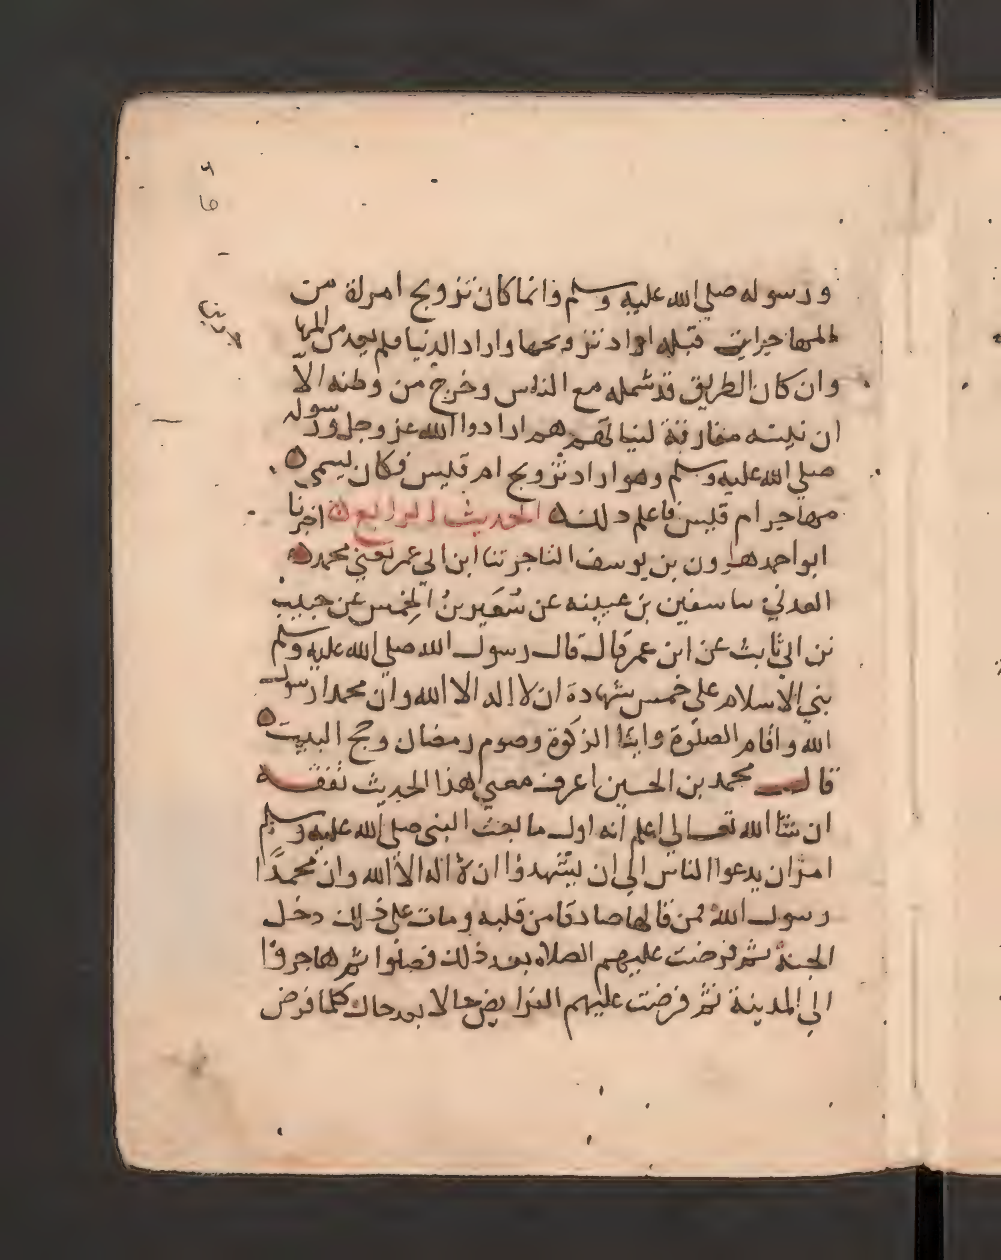 ورسوله صلى الله عليه وسلم وانما كان تزويج امراة من
المهاجرات قبله اراد تزويجها واراد الدنيا فلم يعد من المها
وان كان الطريق قد شمله مع الناس وخرج من وطنه الا
ان نيته مفارقة لنياتهم هم ارادوا الله عز وجل ورسوله
صلى الله عليه وسلم وهو اراد تزويج ام قيس فكان يسمى
مهاجر ام قيس فاعلم ذلك الحديث الرابع اخبرنا
ابو احمد هارون بن يوسف التاجر ثنا ابن ابي عمر يعني محمد
العدني ثنا سفين بن عيينه عن سُعَير بنُ الخِمس عن حبيب
بن ابي ثابت عن ابن عمر قال قال رسول الله صلى الله عليه وسلم
بني الاسلام على خمس شهادة ان لا اله الا الله وان محمدا رسول
الله واقام الصلوة وايتا الزكوة وصوم رمضان وحج البيت
قال محمد بن الحسين اعرف معنى هذا الحديث تفقه
ان شا الله تعالى اعلم انه اول ما بعث النبى صلى الله عليه وسلم
امر ان يدعوا الناس الى ان يشهدوا ان لا اله الا الله وان محمدًا
رسول الله فمن قالها صادقا من قلبه ومات على ذلك دخل
الجنة ثم فرضت عليهم الصلاه بعد ذلك فصلوا ثم هاجروا
الى المدينة ثم فرضت عليهم الفرايض حالا بعد حال كلما فرض